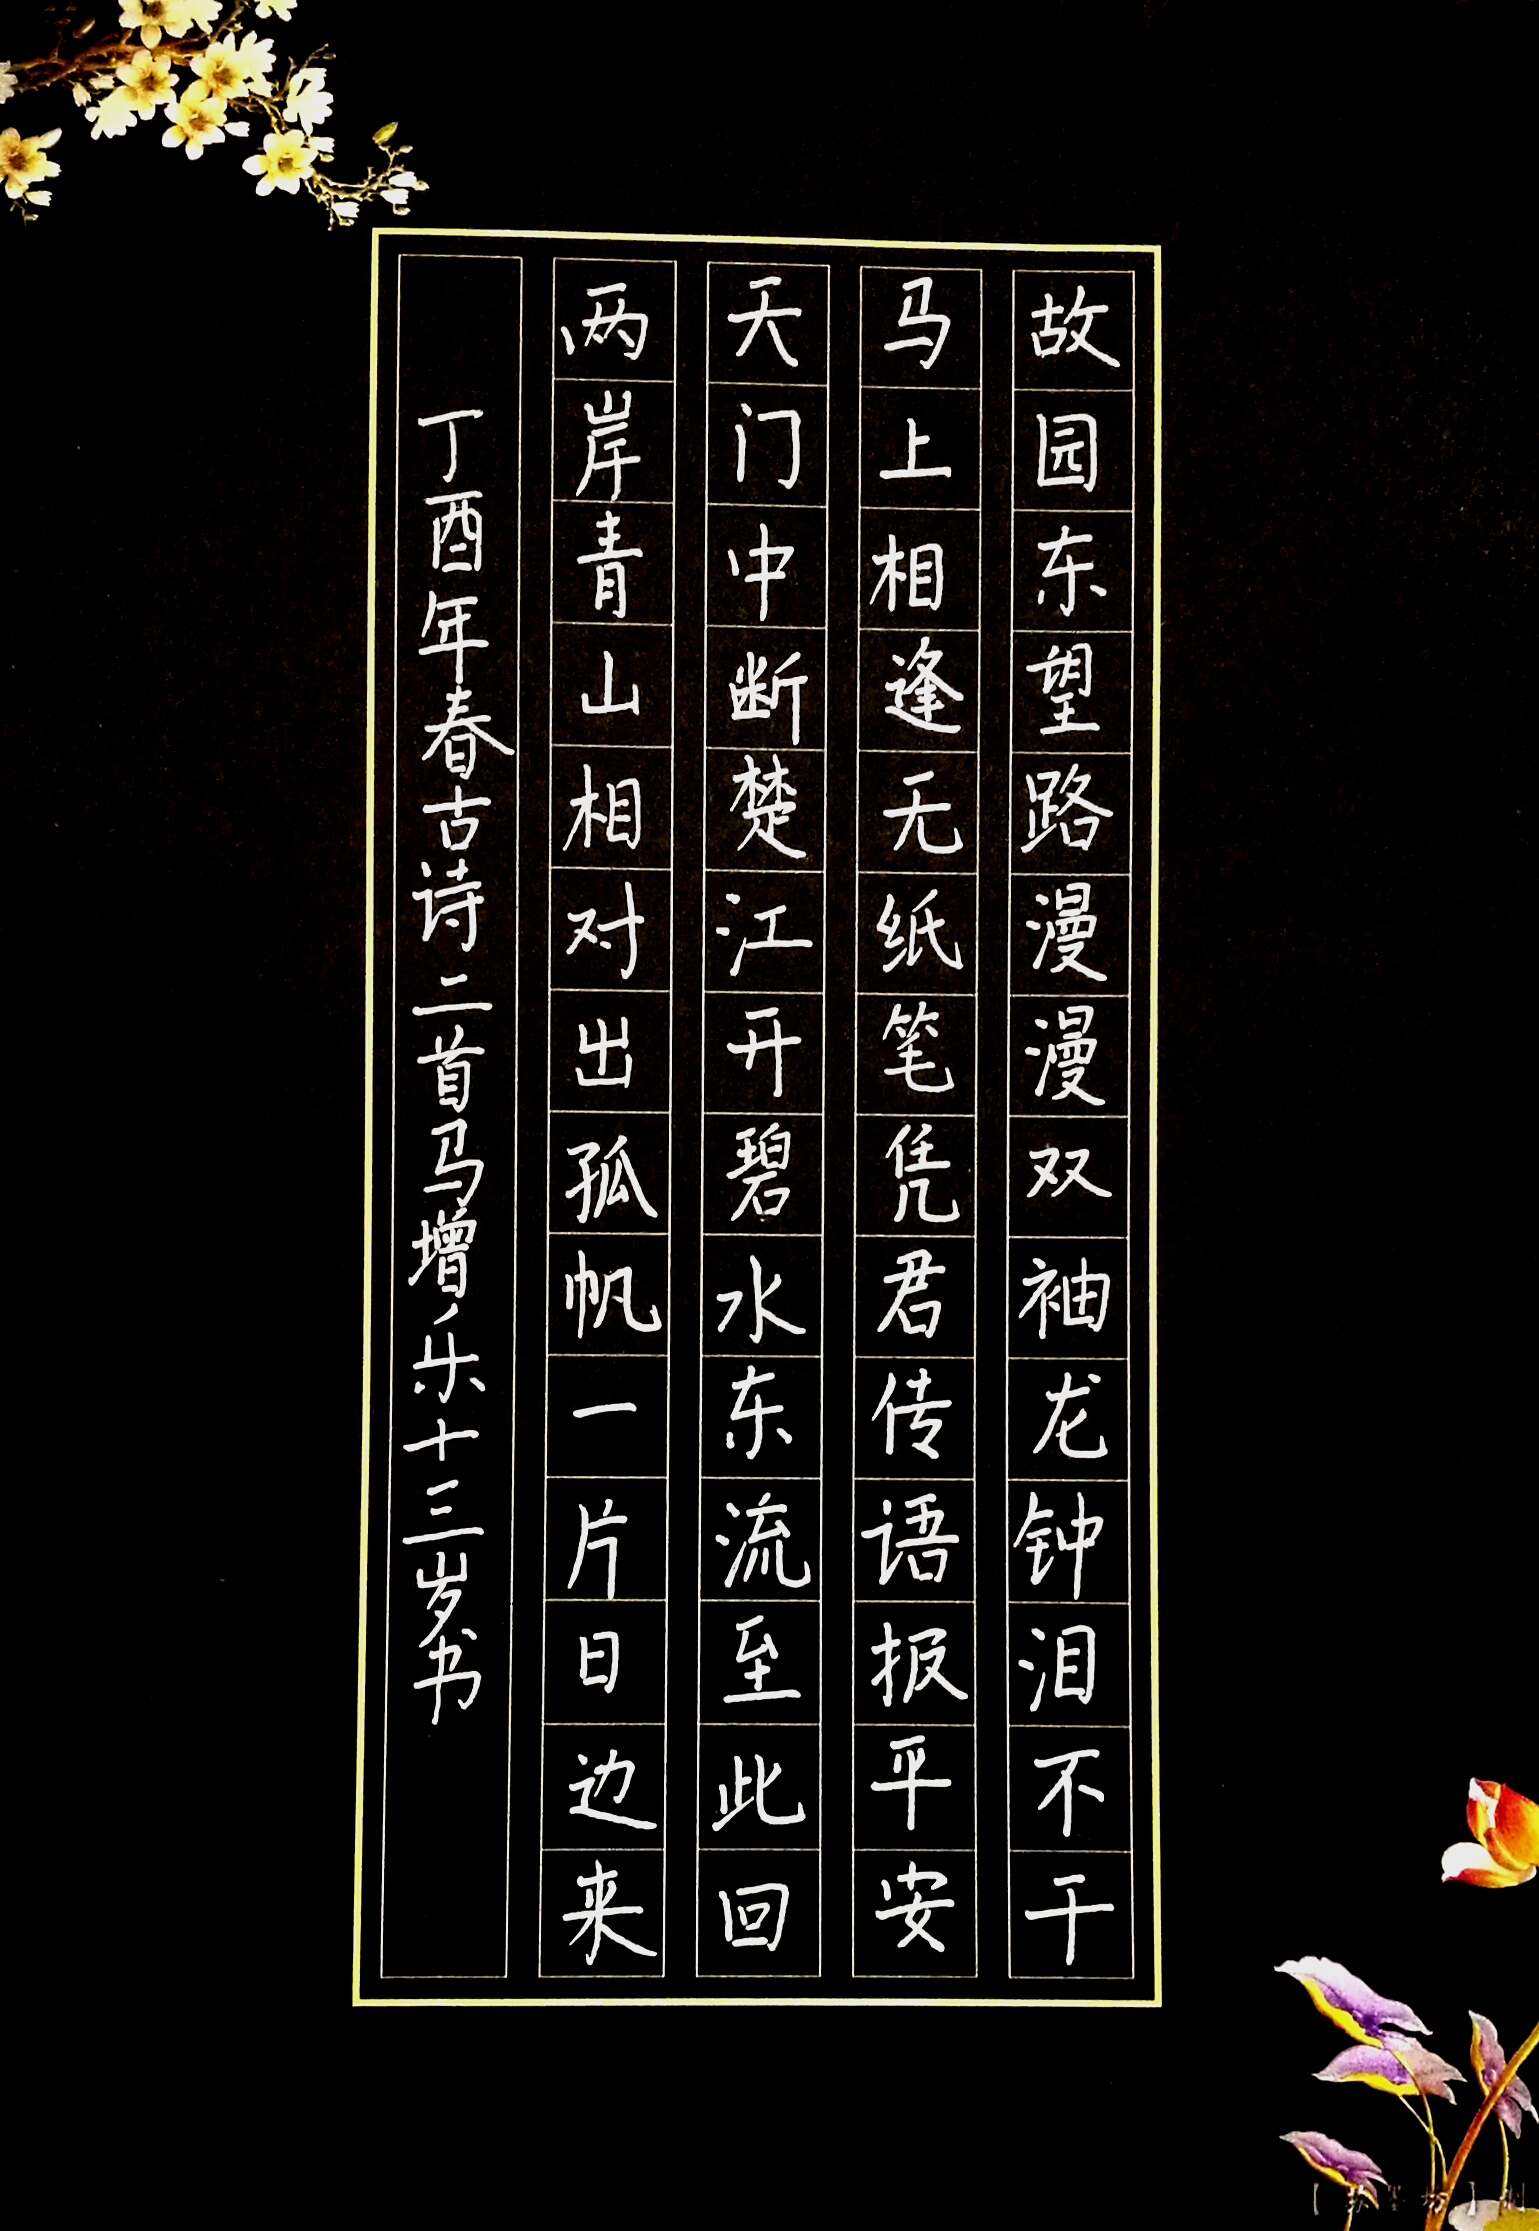 故园东望路漫漫双袖龙钟泪不干
马上相逢无纸笔凭君传语报平安
天门中断楚江开碧水东流至此回
两岸青山相对出孤帆一片日边来
丁酉年春古诗二首马增乐十三岁书